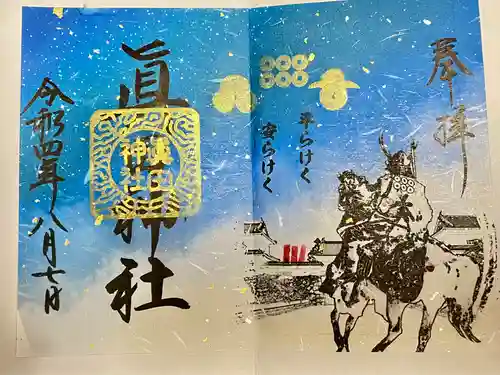 奉拝
平らけく
安らけく
眞田神社
眞田
神社
令和四年八月七日